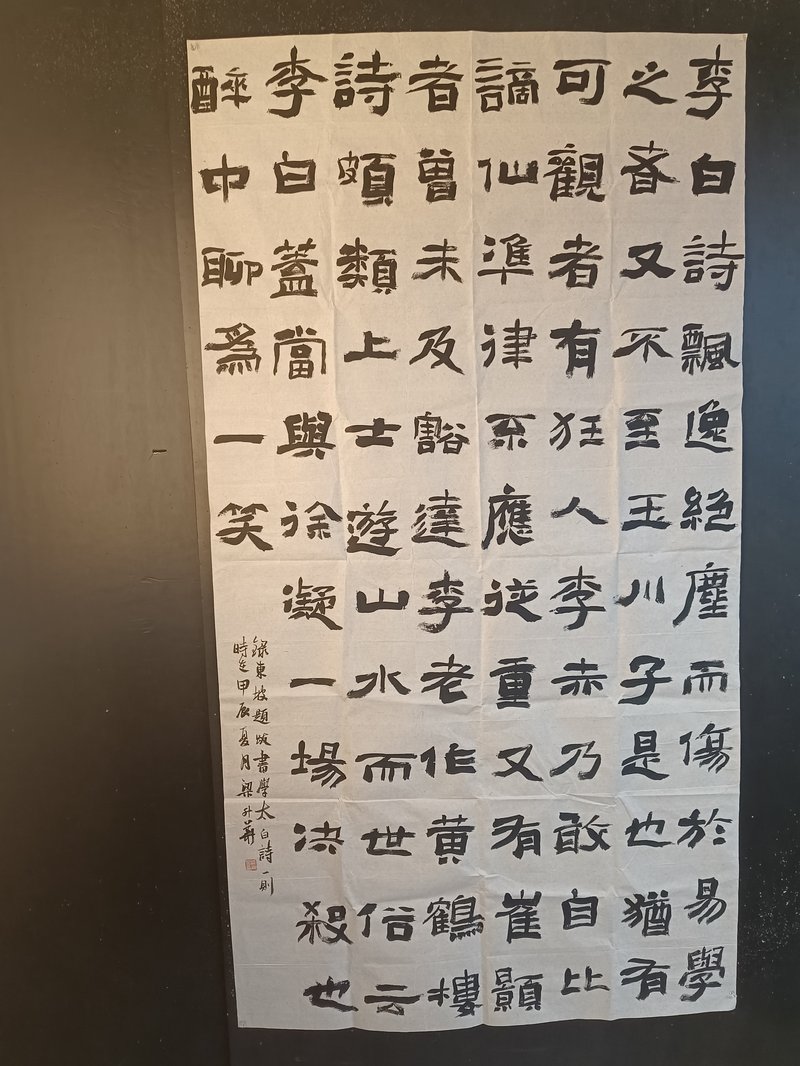 李白詩飄逸絕塵而傷於易學
之者又不至玉川子是也猶有
可觀者有狂人李赤乃敢自比
謫仙準律不應從重又有崔顥
者曾未及豁達李老作黄鶴樓
詩頗類上士遊山水而世俗云
李白蓋當與徐凝一場決殺也
醉中聊爲一笑
錄東坡題跋書學太白詩一則
時在甲辰夏月梁升